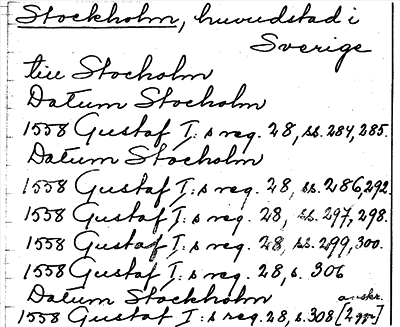 Stockholm, huvudstad i
Sverige
till Stocholm
Datum Stocholm
1558 Gustaf I:s reg. 28, ss. 284, 285.
Datum Stocholm
1558 Gustaf I:s reg. 28, ss. 286, 292.
1558 Gustaf I:s reg. 28, ss. 297, 298.
1558 Gustaf I:s reg. 28, ss. 299, 300.
1558 Gustaf I:s reg. 28, s. 306
Datum Stocholm avskr.
1558 Gustaf I:s reg. 28, s. 308 [2 ggr]